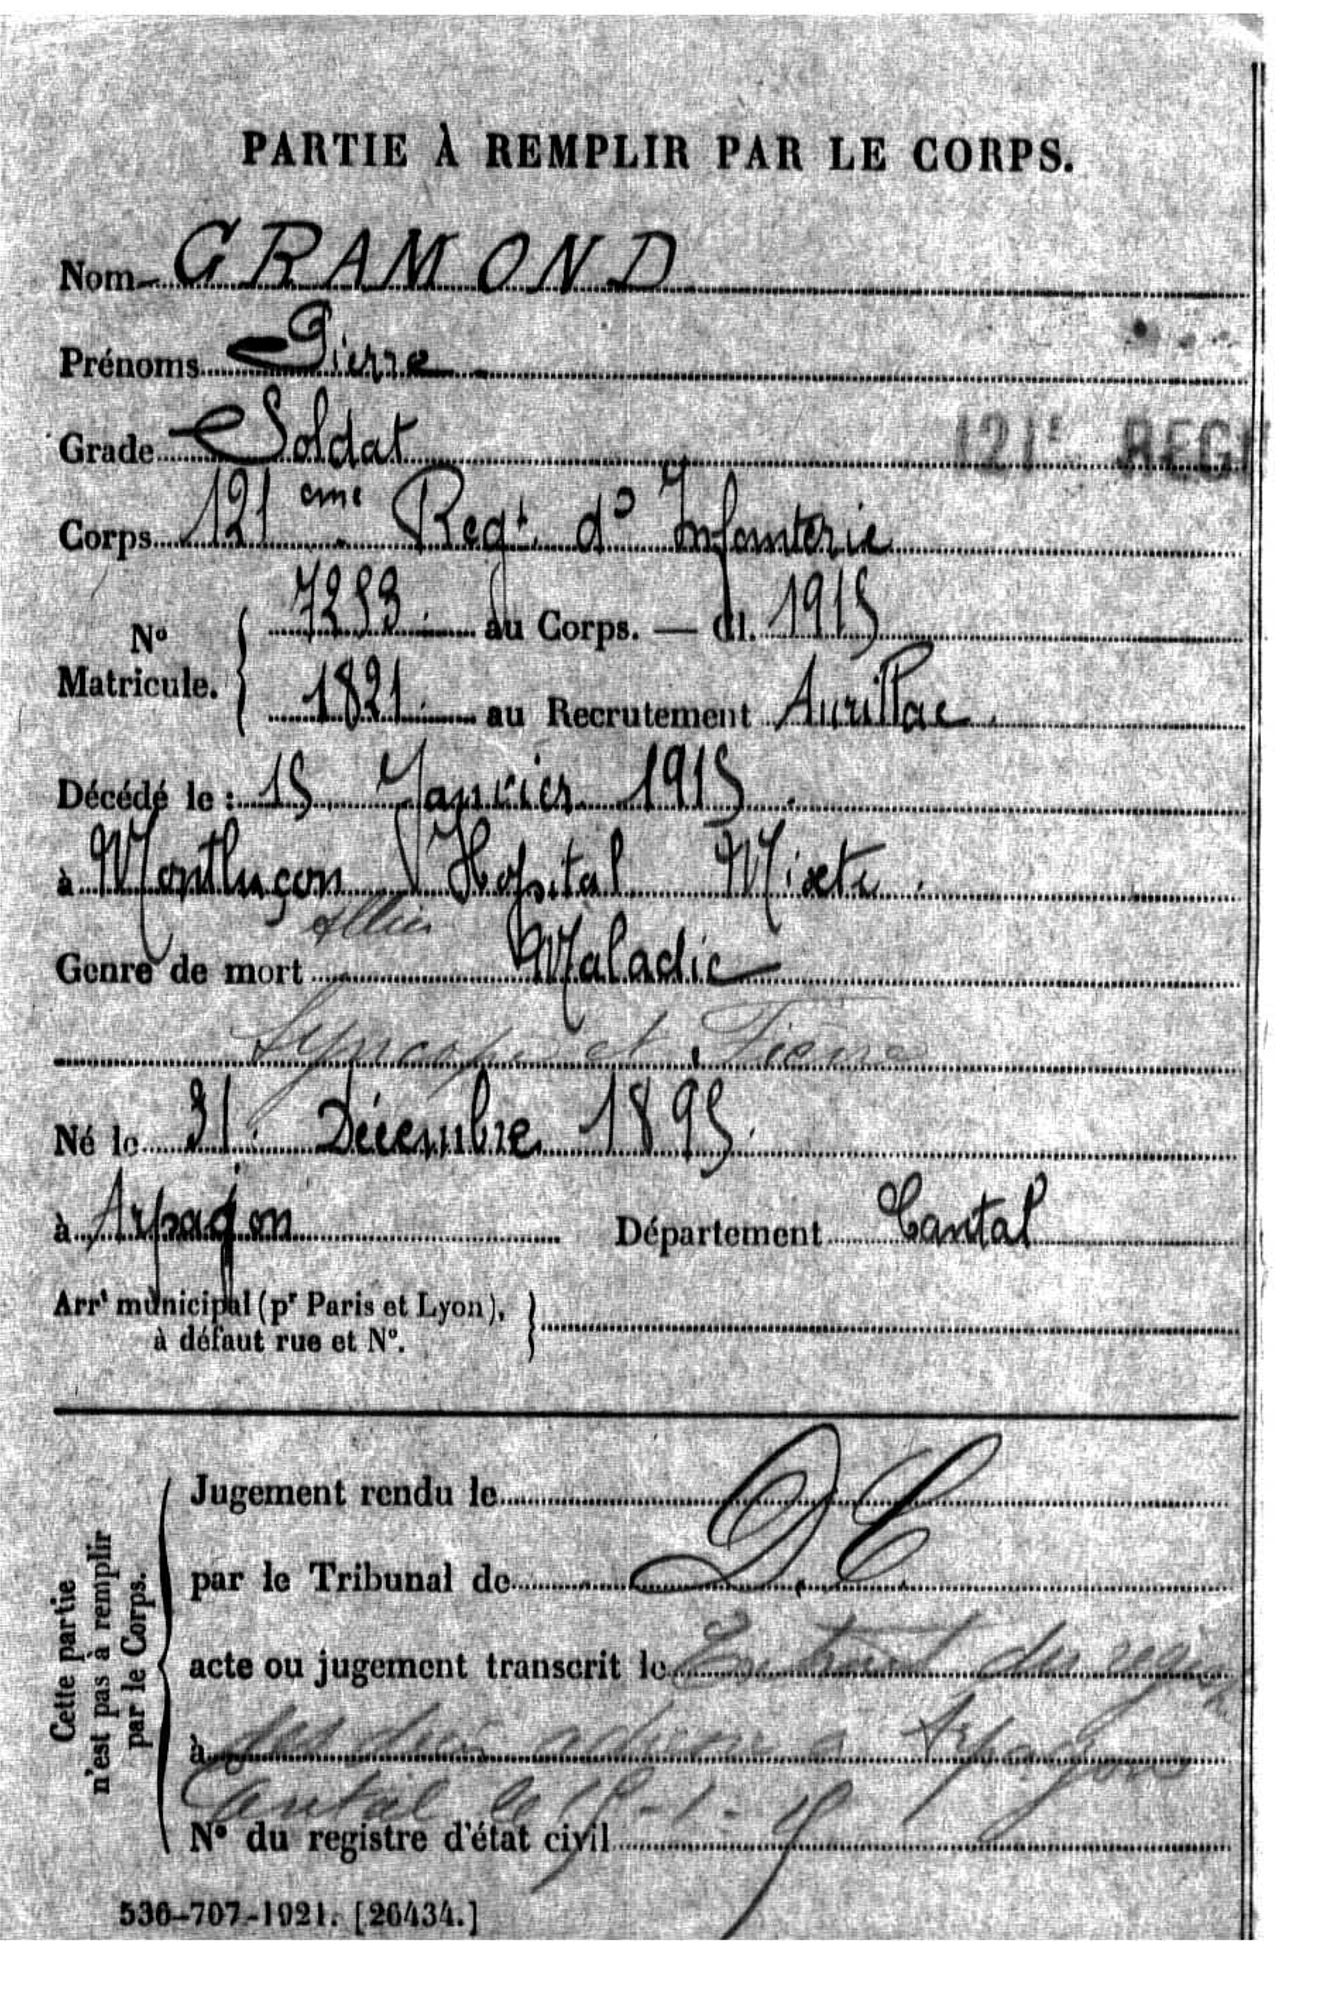 PARTIE À REMPLIR PAR LE CORPS.
Nom GRAMOND
Prénoms Pierre
Grade Soldat
121e REGI
Corps 121 eme Regt d' Infanterie
Nº Matricule. { 7253 au Corps. — Cl. 1915
1821 au Recrutement Aurillac
Décédé le : 15 Janvier 1915
à Montluçon Hopital Mixte
Allier
Genre de mort Maladie
Syncope et Fièvre
Né le 31 Décembre 1895
à Arpajon Département Cantal
Arrt municipal (pr Paris et Lyon), }
à défaut rue et Nº.
Cette partie
n'est pas à remplir
par le Corps.
Jugement rendu le
par le Tribunal de D.C.
acte ou jugement transcrit le Extrait du
à des décès Arpajon
Cantal le 15-1-15
Nº du registre d'état civil
536-707-1921. [26434.]